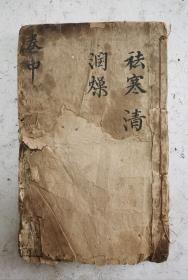 祛寒 清
润燥
卷中